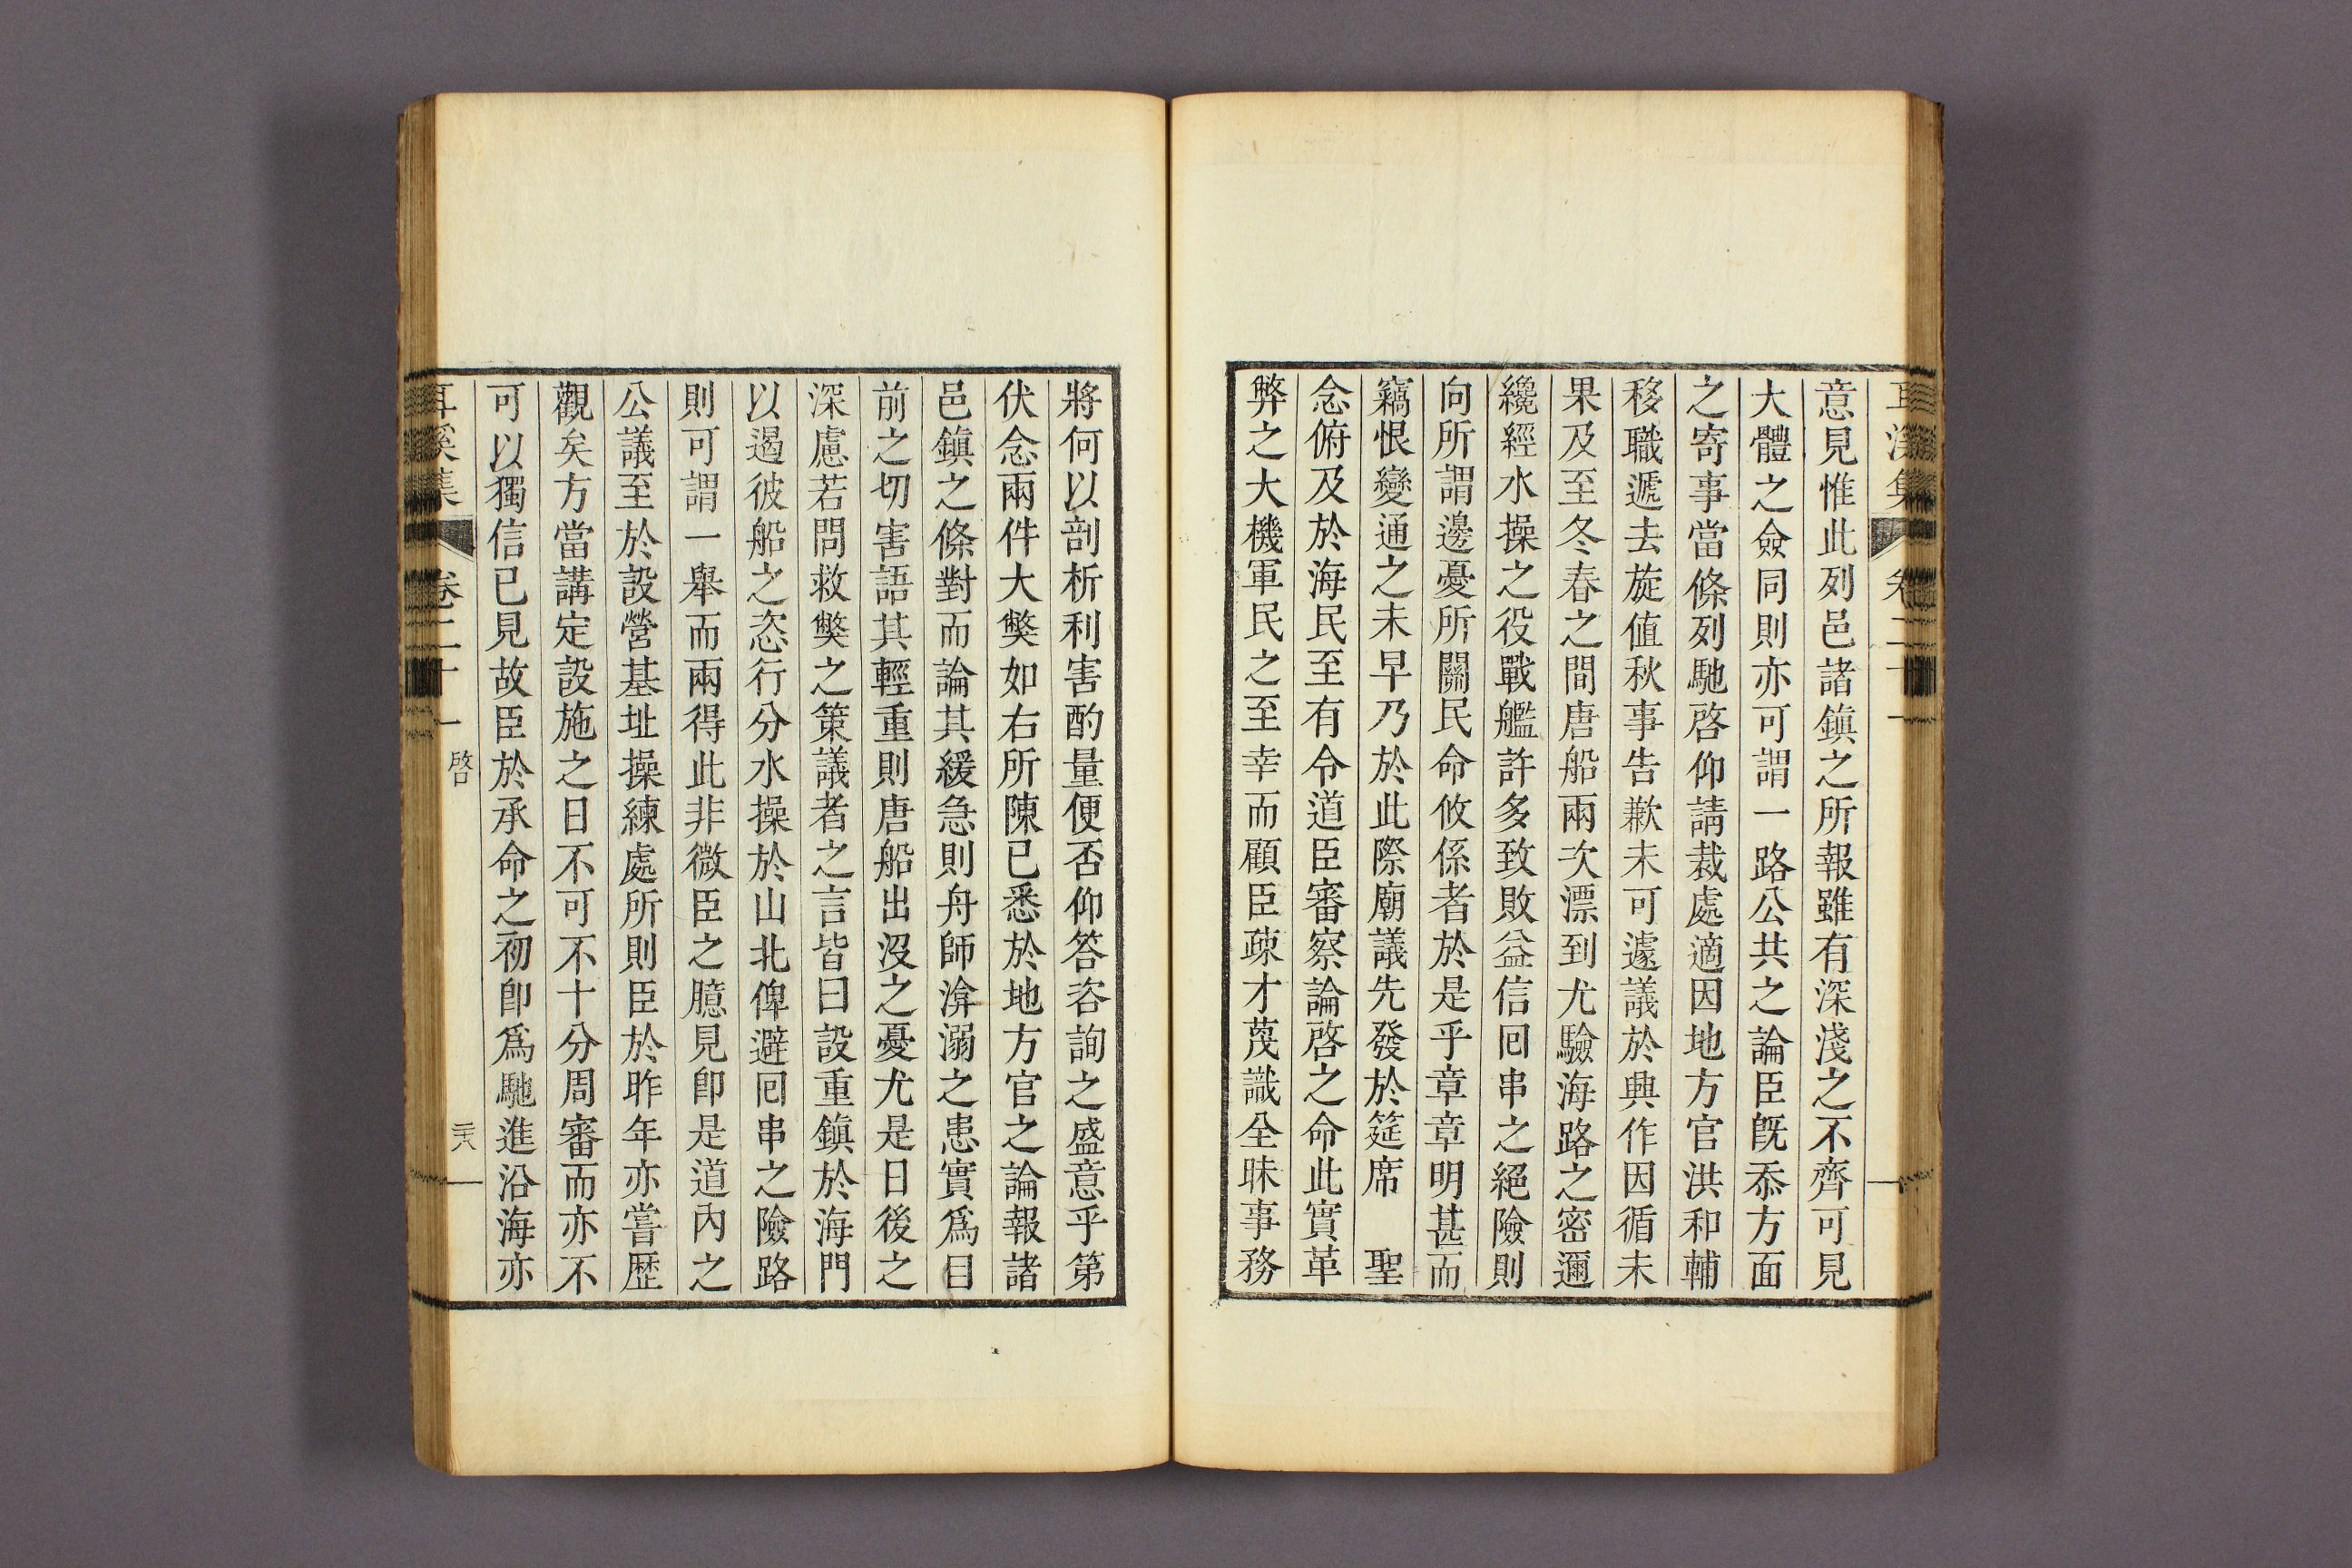 意見惟此列邑諸鎭之所報雖有深淺之不齊可見
大體之僉同則亦可謂一路公共之論臣旣忝方面
之寄事當條列馳啓仰請裁處適因地方官洪和輔
移職遞去旋値秋事告歉未可遽議於興作因循未
果及至冬春之間唐船兩次漂到尤驗海路之密邇
纔經水操之役戰艦許多致敗益信回串之絕險則
向所謂邊憂所關民命攸係者於是乎章章明甚而
竊恨變通之未早乃於此際廟議先發於筵席　聖
念俯及於海民至有令道臣審察論啓之命此實革
弊之大機軍民之至幸而顧臣疎才蔑識全昧事務
將何以剖析利害酌量便否仰答咨詢之盛意乎第
伏念兩件大獘如右所陳已悉於地方官之論報諸
邑鎭之條對而論其緩急則舟師渰溺之患實爲目
前之切害語其輕重則唐船出沒之憂尤是日後之
深慮若問救獘之策議者之言皆曰設重鎭於海門
以遏彼船之恣行分水操於山北俾避回串之險路
則可謂一舉而兩得此非微臣之臆見卽是道內之
公議至於設營基址操練處所則臣於昨年亦嘗歷
觀矣方當講定設施之日不可不十分周審而亦不
可以獨信已見故臣於承命之初卽爲馳進沿海亦
耳溪集　卷二十一　啓　三十八